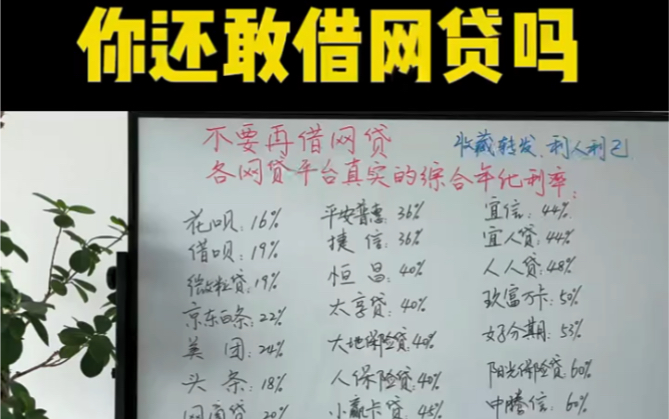 你还敢借网贷吗
不要再借网贷
收藏转发、利人利己
各网贷平台真实的综合年化利率:
花呗:16% 平安普惠:36% 宜信:44%
借呗:19% 捷信:36% 宜人贷:44%
微粒贷:19% 恒昌:40% 人人贷:48%
京东白条:22% 太享贷:40% 玖富万卡:50%
美团:24% 大地保险贷:40% 好分期:53%
头条:18% 人保险贷:40% 阳光保险贷:60%
网商贷:20% 小赢卡贷:45% 中腾信:60%